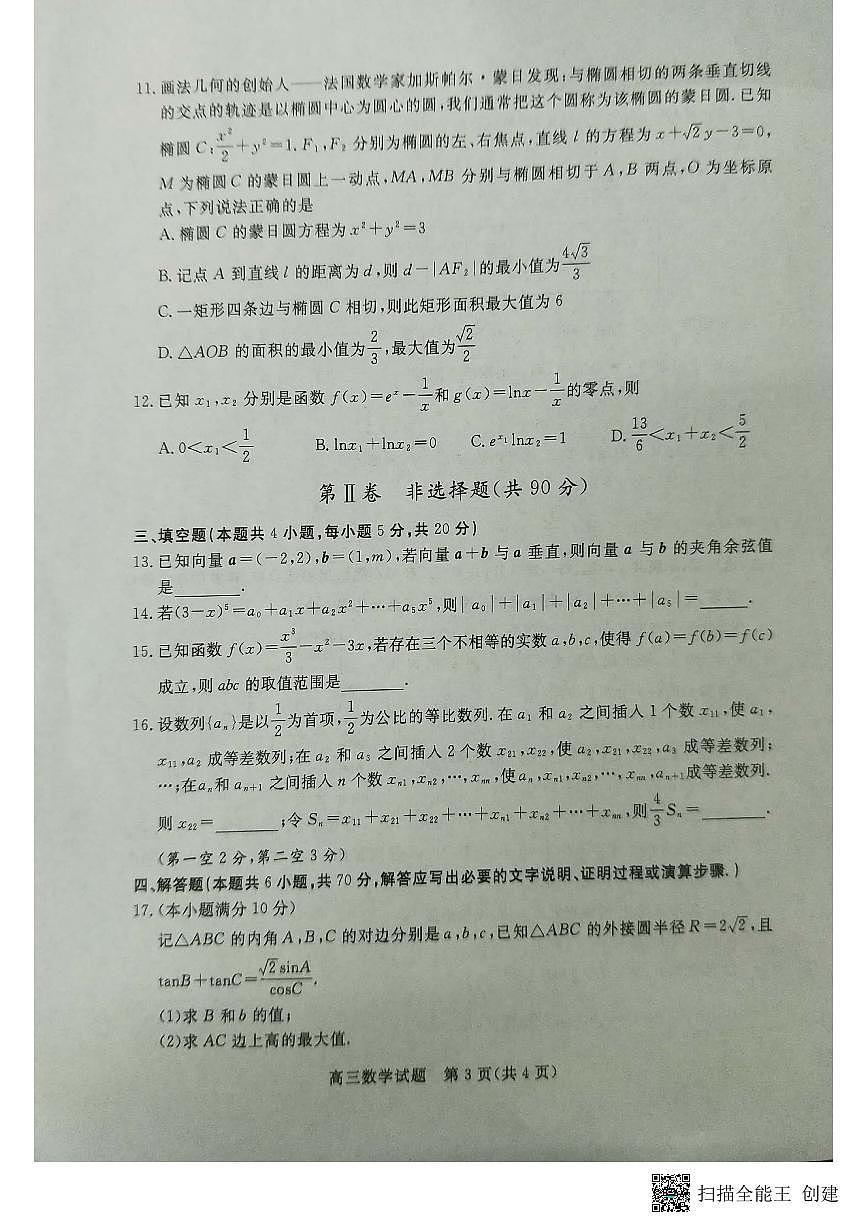 11. 画法几何的创始人——法国数学家加斯帕尔·蒙日发现:与椭圆相切的两条垂直切线
的交点的轨迹是以椭圆中心为圆心的圆,我们通常把这个圆称为该椭圆的蒙日圆.已知
椭圆 C:x²/2+y²=1,F₁,F₂ 分别为椭圆的左、右焦点,直线 l 的方程为 x+√2y-3=0,
M 为椭圆 C 的蒙日圆上一动点,MA,MB 分别与椭圆相切于 A,B 两点,O 为坐标原
点,下列说法正确的是
A. 椭圆 C 的蒙日圆方程为 x²+y²=3
B. 记点 A 到直线 l 的距离为 d,则 d-|AF₂|的最小值为 4√3/3
C. 一矩形四条边与椭圆 C 相切,则此矩形面积最大值为 6
D. △AOB 的面积的最小值为 2/3,最大值为 √2/2
12. 已知 x₁,x₂ 分别是函数 f(x)=eˣ-1/x 和 g(x)=lnx-1/x 的零点,则
A. 0<x₁<1/2 B. lnx₁+lnx₂=0 C. e^{x₁}lnx₂=1 D. 13/6<x₁+x₂<5/2
第Ⅱ卷 非选择题(共 90 分)
三、填空题(本题共 4 小题,每小题 5 分,共 20 分)
13. 已知向量 a=(-2,2),b=(1,m),若向量 a+b 与 a 垂直,则向量 a 与 b 的夹角余弦值
是______.
14. 若(3-x)⁵=a₀+a₁x+a₂x²+…+a₅x⁵,则|a₀|+|a₁|+|a₂|+…+|a₅|=______.
15. 已知函数 f(x)=x³/3-x²-3x,若存在三个不相等的实数 a,b,c,使得 f(a)=f(b)=f(c)
成立,则 abc 的取值范围是______.
16. 设数列{aₙ}是以 1/2 为首项,1/2 为公比的等比数列.在 a₁ 和 a₂ 之间插入 1 个数 x₁₁,使 a₁,
x₁₁,a₂ 成等差数列;在 a₂ 和 a₃ 之间插入 2 个数 x₂₁,x₂₂,使 a₂,x₂₁,x₂₂,a₃ 成等差数列;
…;在 aₙ 和 aₙ₊₁ 之间插入 n 个数 xₙ₁,xₙ₂,…,xₙₙ,使 aₙ,xₙ₁,xₙ₂,…,xₙₙ,aₙ₊₁成等差数列.
则 x₂₂=______;令 Sₙ=x₁₁+x₂₁+x₂₂+…+xₙ₁+xₙ₂+…+xₙₙ,则 4/3 Sₙ=______.
(第一空 2 分,第二空 3 分)
四、解答题(本题共 6 小题,共 70 分,解答应写出必要的文字说明、证明过程或演算步骤.)
17. (本小题满分 10 分)
记△ABC 的内角 A,B,C 的对边分别是 a,b,c,已知△ABC 的外接圆半径 R=2√2,且
tanB+tanC=√2sinA/cosC.
(1)求 B 和 b 的值;
(2)求 AC 边上高的最大值.
高三数学试题 第 3 页(共 4 页)
扫描全能王 创建